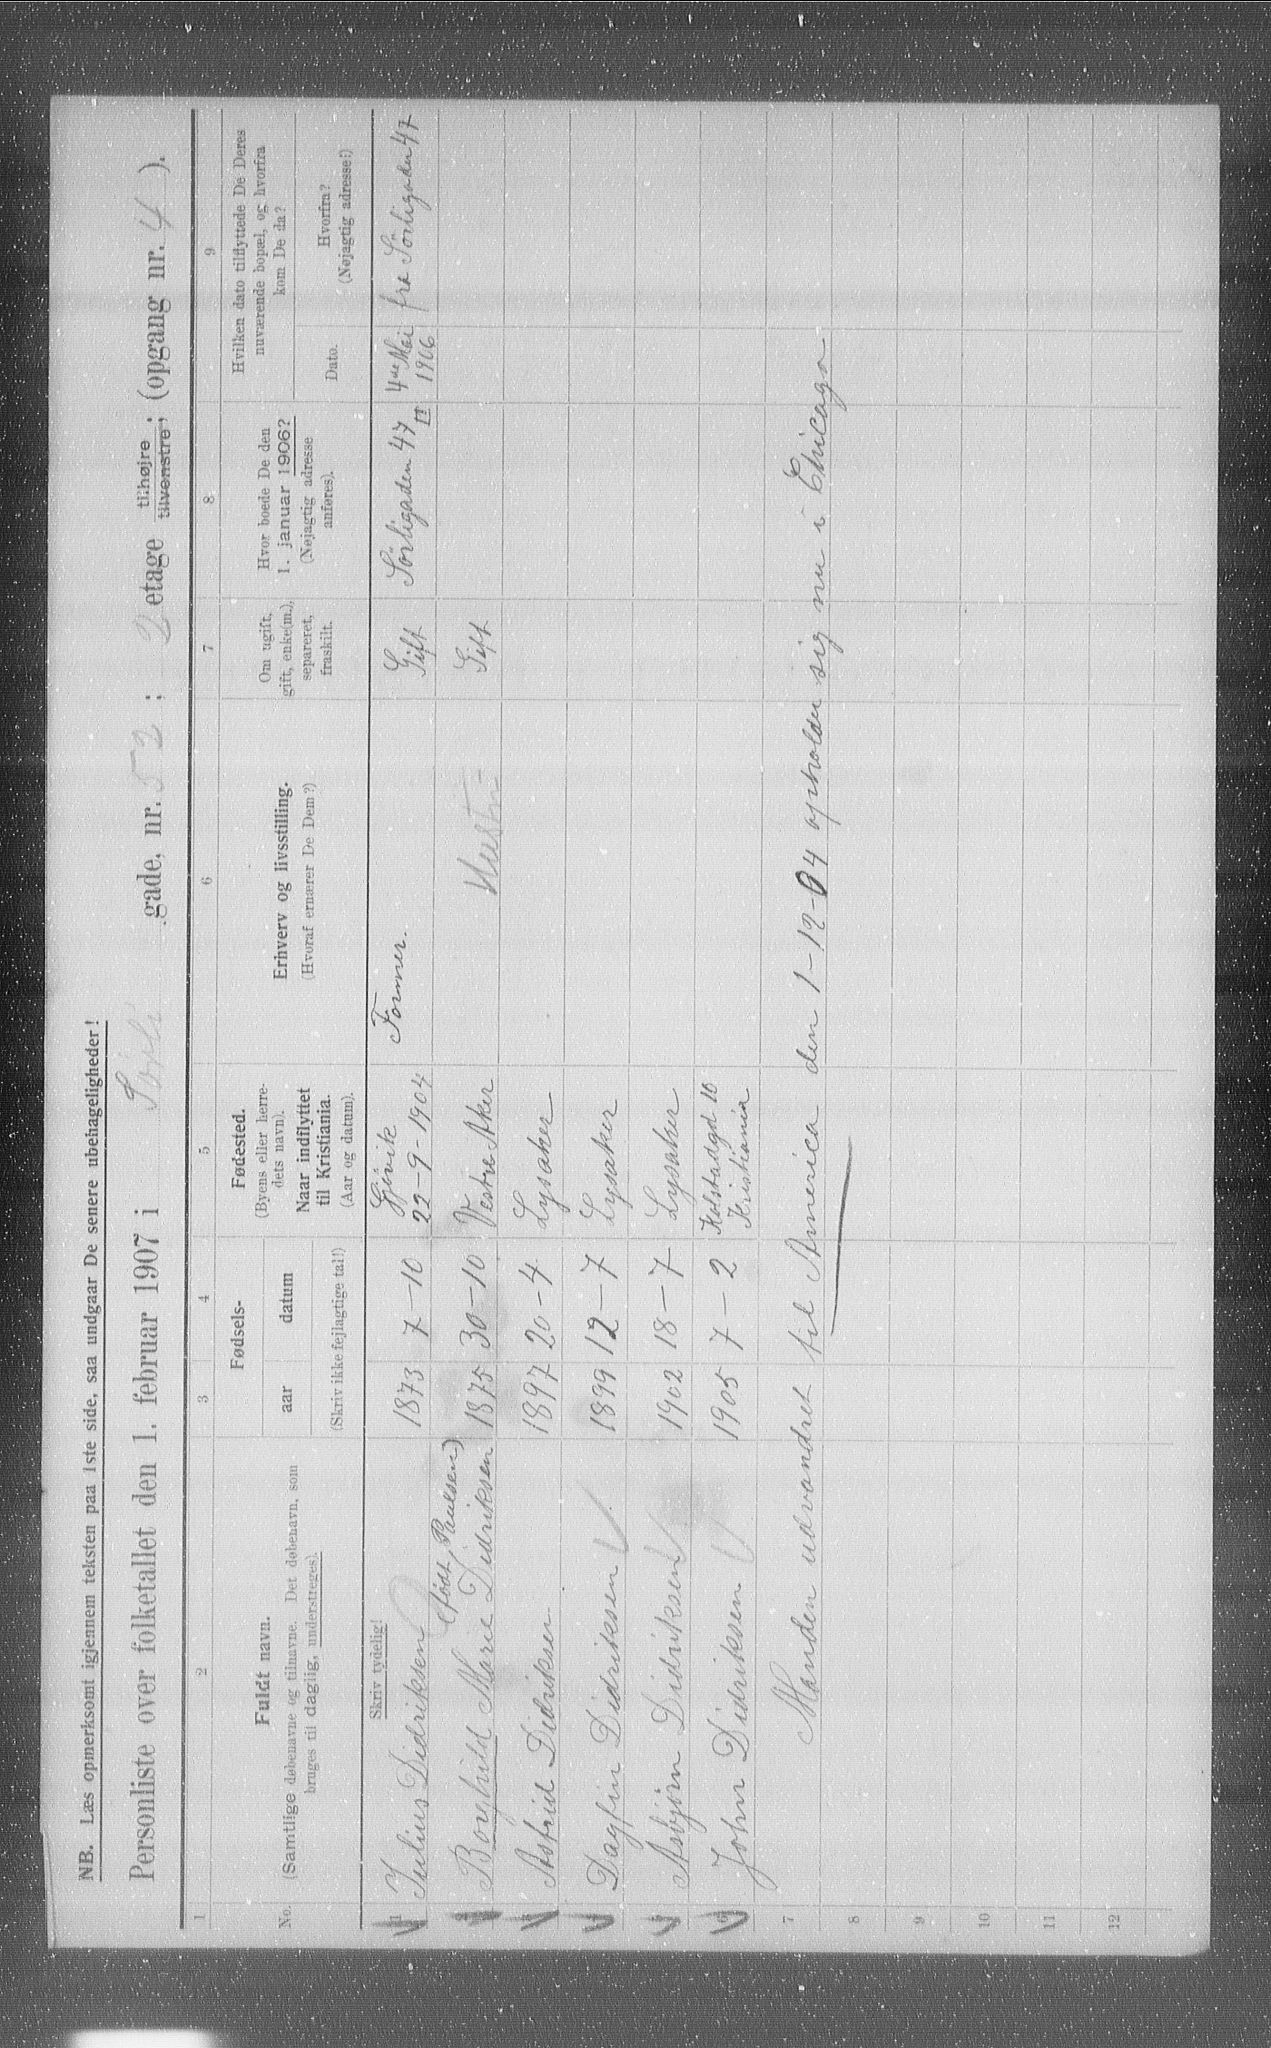 NB. Læs opmerksomt igjennem teksten paa 1ste side, saa undgaar De senere ubehageligheder!
Personliste over folketallet den 1. februar 1907 i Sørli gade, nr. 52 ; 2 etage tilhøjre ; (opgang nr. 4 ).
tilvenstre
1 2 3 4 5 6 7 8 9
No.
Fuldt navn.
(Samtlige døbenavne og tilnavne. Det døbenavn, som
bruges til daglig, understreges).
Fødsels-
aar datum
(Skriv ikke fejlagtige tal!)
Fødested.
(Byens eller herre-
dets navn).
Naar indflyttet
til Kristiania.
(Aar og datum).
Erhverv og livsstilling.
(Hvoraf ernærer De Dem?)
Om ugift,
gift, enke(m.),
separeret,
fraskilt.
Hvor boede De den
1. januar 1906?
(Nøjagtig adresse
anføres).
Hvilken dato tilflyttede De Deres
nuværende bopæl, og hvorfra
kom De da?
Dato.
Hvorfra?
(Nøjagtig adresse!)
Skriv tydelig!
1 Julius Didriksen 1873 7-10 Gjøvik Former. Gift Sörligaden 47 4de Mai fra Sörligaden 47
22-9-1904 II 1906
(født Paulsen)
2 Borghild Marie Didriksen 1875 30-10 Vestre Aker Hustru Gift
3 Astrid Didriksen 1897 20-4 Lysaker
4 Dagfin Didriksen 1899 12-7 Lysaker
5 Asbjørn Didriksen 1902 18-7 Lysaker
6 John Didriksen 1905 7-2 Kolstadgd 10
Kristiania
7 Manden udvandret til America den 1-12-04 opholder sig nu i Chicago
8
9
10
11
12